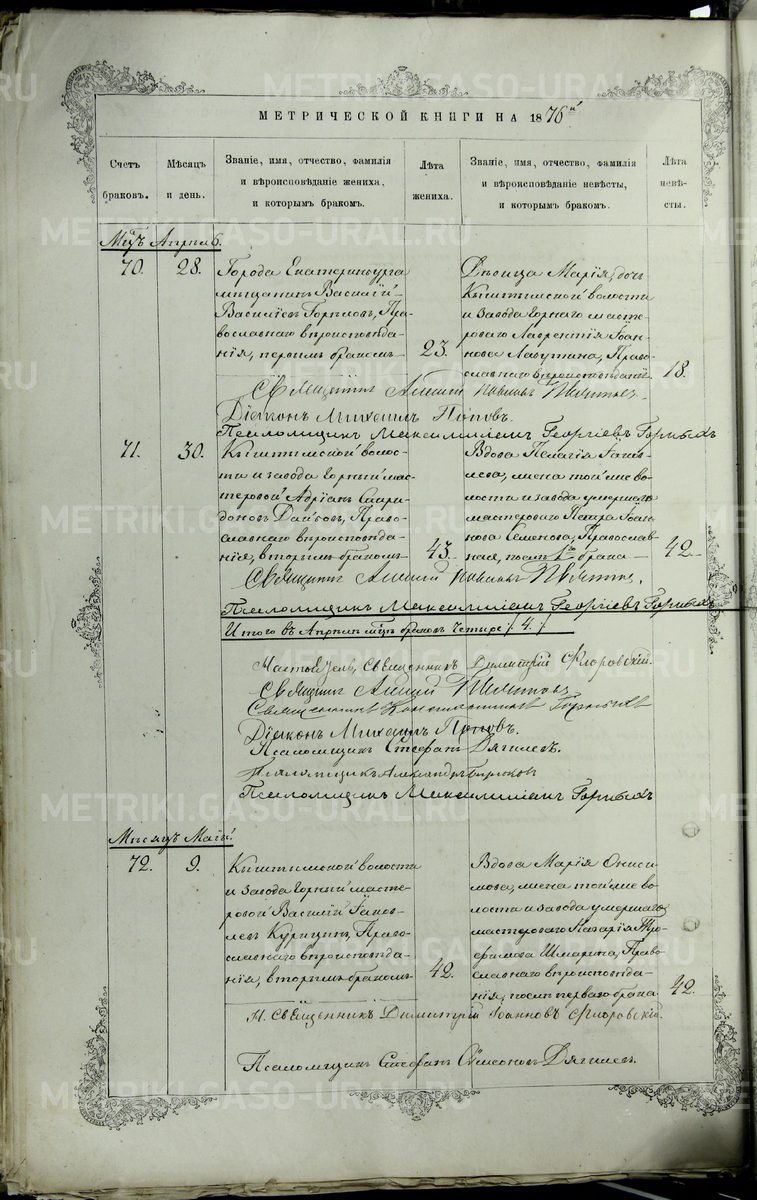 МЕТРИЧЕСКОЙ КНИГИ НА 1876й
Счетъ
браковъ.
Мѣсяцъ
и день.
Званіе, имя, отчество, фамилія
и вѣроисповѣданіе жениха,
и которымъ бракомъ.
Лѣта
жениха.
Званіе, имя, отчество, фамилія
и вѣроисповѣданіе невѣсты,
и которымъ бракомъ.
Лѣта
невѣ-
сты.
Мцъ Апрель.
70.
28.
Города Екатеринбурга
мѣщанинъ Василій
Васильевъ, Пра-
вославнаго вѣроисповѣда-
нія, первымъ бракомъ
23.
Дѣвица Марія, дочь
Кыштымской волости
и завода горнаго масте-
роваго Лаврентія Іоан-
нова, Право-
славнаго вѣроисповѣданія
18.
Священникъ Алексій
Діаконъ Михаилъ Поповъ.
Псаломщикъ Максимиліанъ Георгіевъ Горныхъ
71.
30.
Кыштымской волос-
ти и завода горный мас-
теровой Адріанъ Спири-
доновъ, Право-
славнаго вѣроисповѣда-
нія, вторымъ бракомъ
43.
Вдова Пелагія Іаков-
лева, жена той же во-
лости и завода умершаго
мастероваго Петра Іоан-
нова Семенова, Православ-
ная, послѣ 1го брака
42.
Священникъ Алексій
Псаломщикъ Максимиліанъ Георгіевъ Горныхъ
Итого въ Апрелѣ мцѣ браковъ четыре /4./
Настоятель, Священникъ Димитрій Флоровскій.
Священникъ Алексій
Священникъ Константинъ
Діаконъ Михаилъ Поповъ.
Псаломщикъ Стефанъ Дягилевъ.
Псаломщикъ Александръ Бирюковъ
Псаломщикъ Максимиліанъ Горныхъ
Мѣсяцъ Май.
72.
9.
Кыштымской волости
и завода горный масте-
ровой Василій Іаков-
левъ Курицинъ, Право-
славнаго вѣроисповѣда-
нія, вторымъ бракомъ
42.
Вдова Марія Ониси-
мова, жена той же во-
лости и завода умершаго
мастероваго Назарія Тро-
фимова Шмарина, Право-
славнаго вѣроисповѣда-
нія, послѣ перваго брака
42.
Н. Священникъ Димитрій Іоанновъ Флоровскій
Псаломщикъ Стефанъ Симеоновъ Дягилевъ.
METRIKI.GASO-URAL.RU